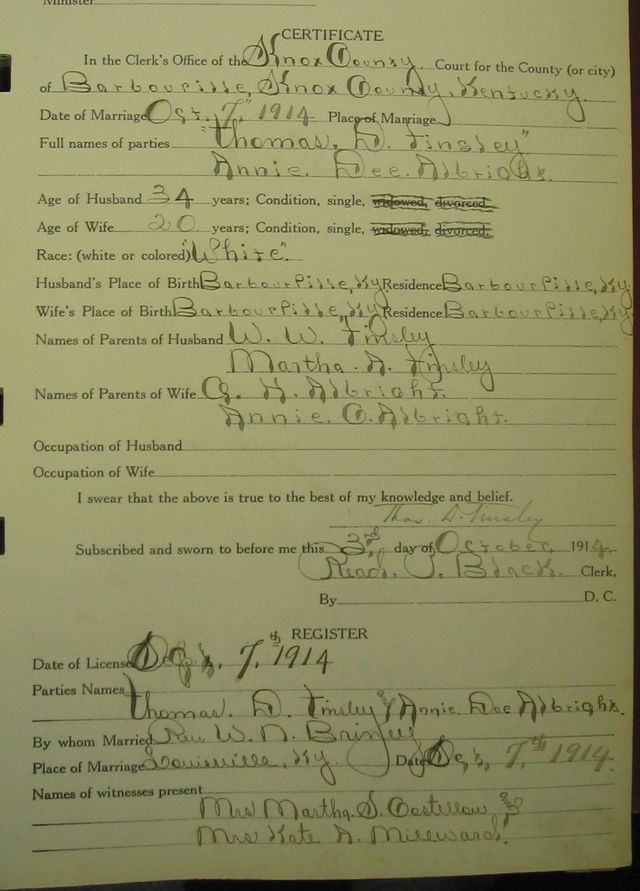 Minister
CERTIFICATE
In the Clerk's Office of the Knox County Court for the County (or city)
of Barbourville, Knox County, Kentucky.
Date of Marriage Oct. 7," 1914 Place of Marriage
Full names of parties "Thomas. D. Tinsley"
Annie. Dee. Albright.
Age of Husband 34 years; Condition, single, widowed, divorced.
Age of Wife 20 years; Condition, single, widowed, divorced.
Race: (white or colored) "White".
Husband's Place of Birth Barbourville, Ky Residence Barbourville, Ky
Wife's Place of Birth Barbourville, Ky Residence Barbourville, Ky
Names of Parents of Husband W. W. Tinsley
Martha. A. Tinsley
Names of Parents of Wife G. H. Albright.
Annie. C. Albright.
Occupation of Husband
Occupation of Wife
I swear that the above is true to the best of my knowledge and belief.
Thos. D. Tinsley
Subscribed and sworn to before me this 3rd, day of October, 1914.
Read. P. Black. Clerk.
By D. C.
REGISTER
Date of License Oct, 7,th 1914
Parties Names
Thomas. D. Tinsley & Annie. Dee Albright.
By whom Married Rev W. N. Briney
Place of Marriage Louisville, Ky. Date Oct, 7,th 1914.
Names of witnesses present
Mrs Martha. S. Costellow &
Mrs Kate A. Milleward.